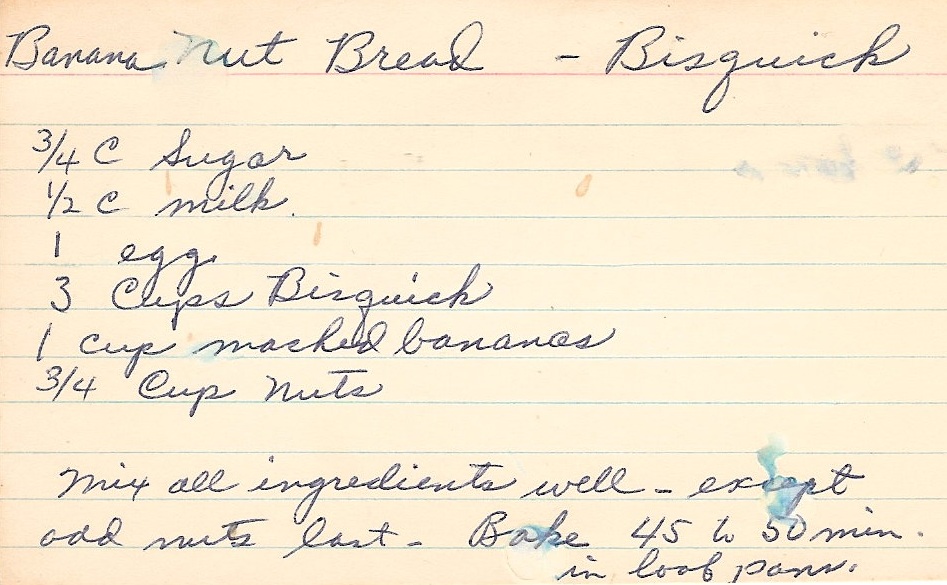 Banana Nut Bread - Bisquick
3/4 C Sugar
1/2 C milk.
1 egg.
3 Cups Bisquick
1 cup mashed bananas
3/4 Cup Nuts
Mix all ingredients well - except
add nuts last - Bake 45 to 50 min.
in loaf pans.